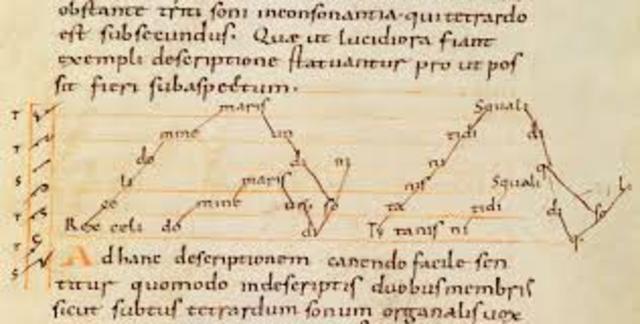 obstante triti soni inconsonantia. qui tetrardo
est subsecundus. Quæ ut lucidiora fiant
exempli descriptione statuantur pro ut pos
sit fieri sub aspectum.
T T S T T T S
maris Squali
mine un tidi di
do di ni ni
li maris nis Squali li
ce mine so ta tidi di so
Rex celi do di Ty tanis ni
Ad hanc descriptionem canendo facile sen
titur quomodo in descriptis duobus membris
sicut subtus tetrardum sonum organalis uox